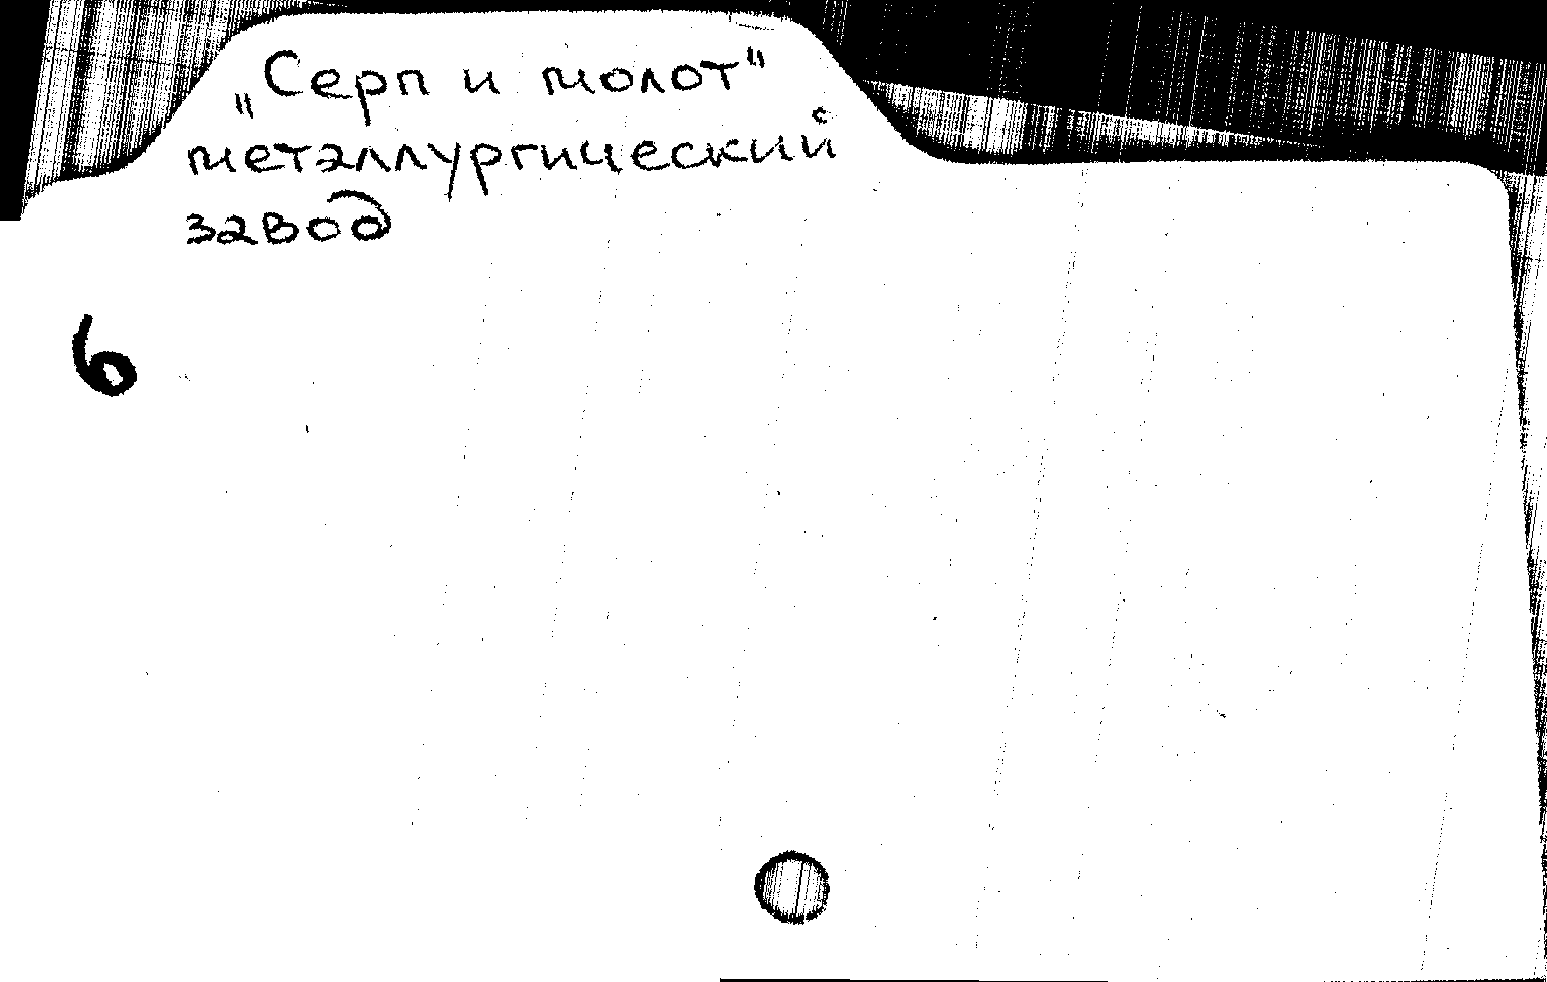 „Серп и молот"
металлургический
завод
6